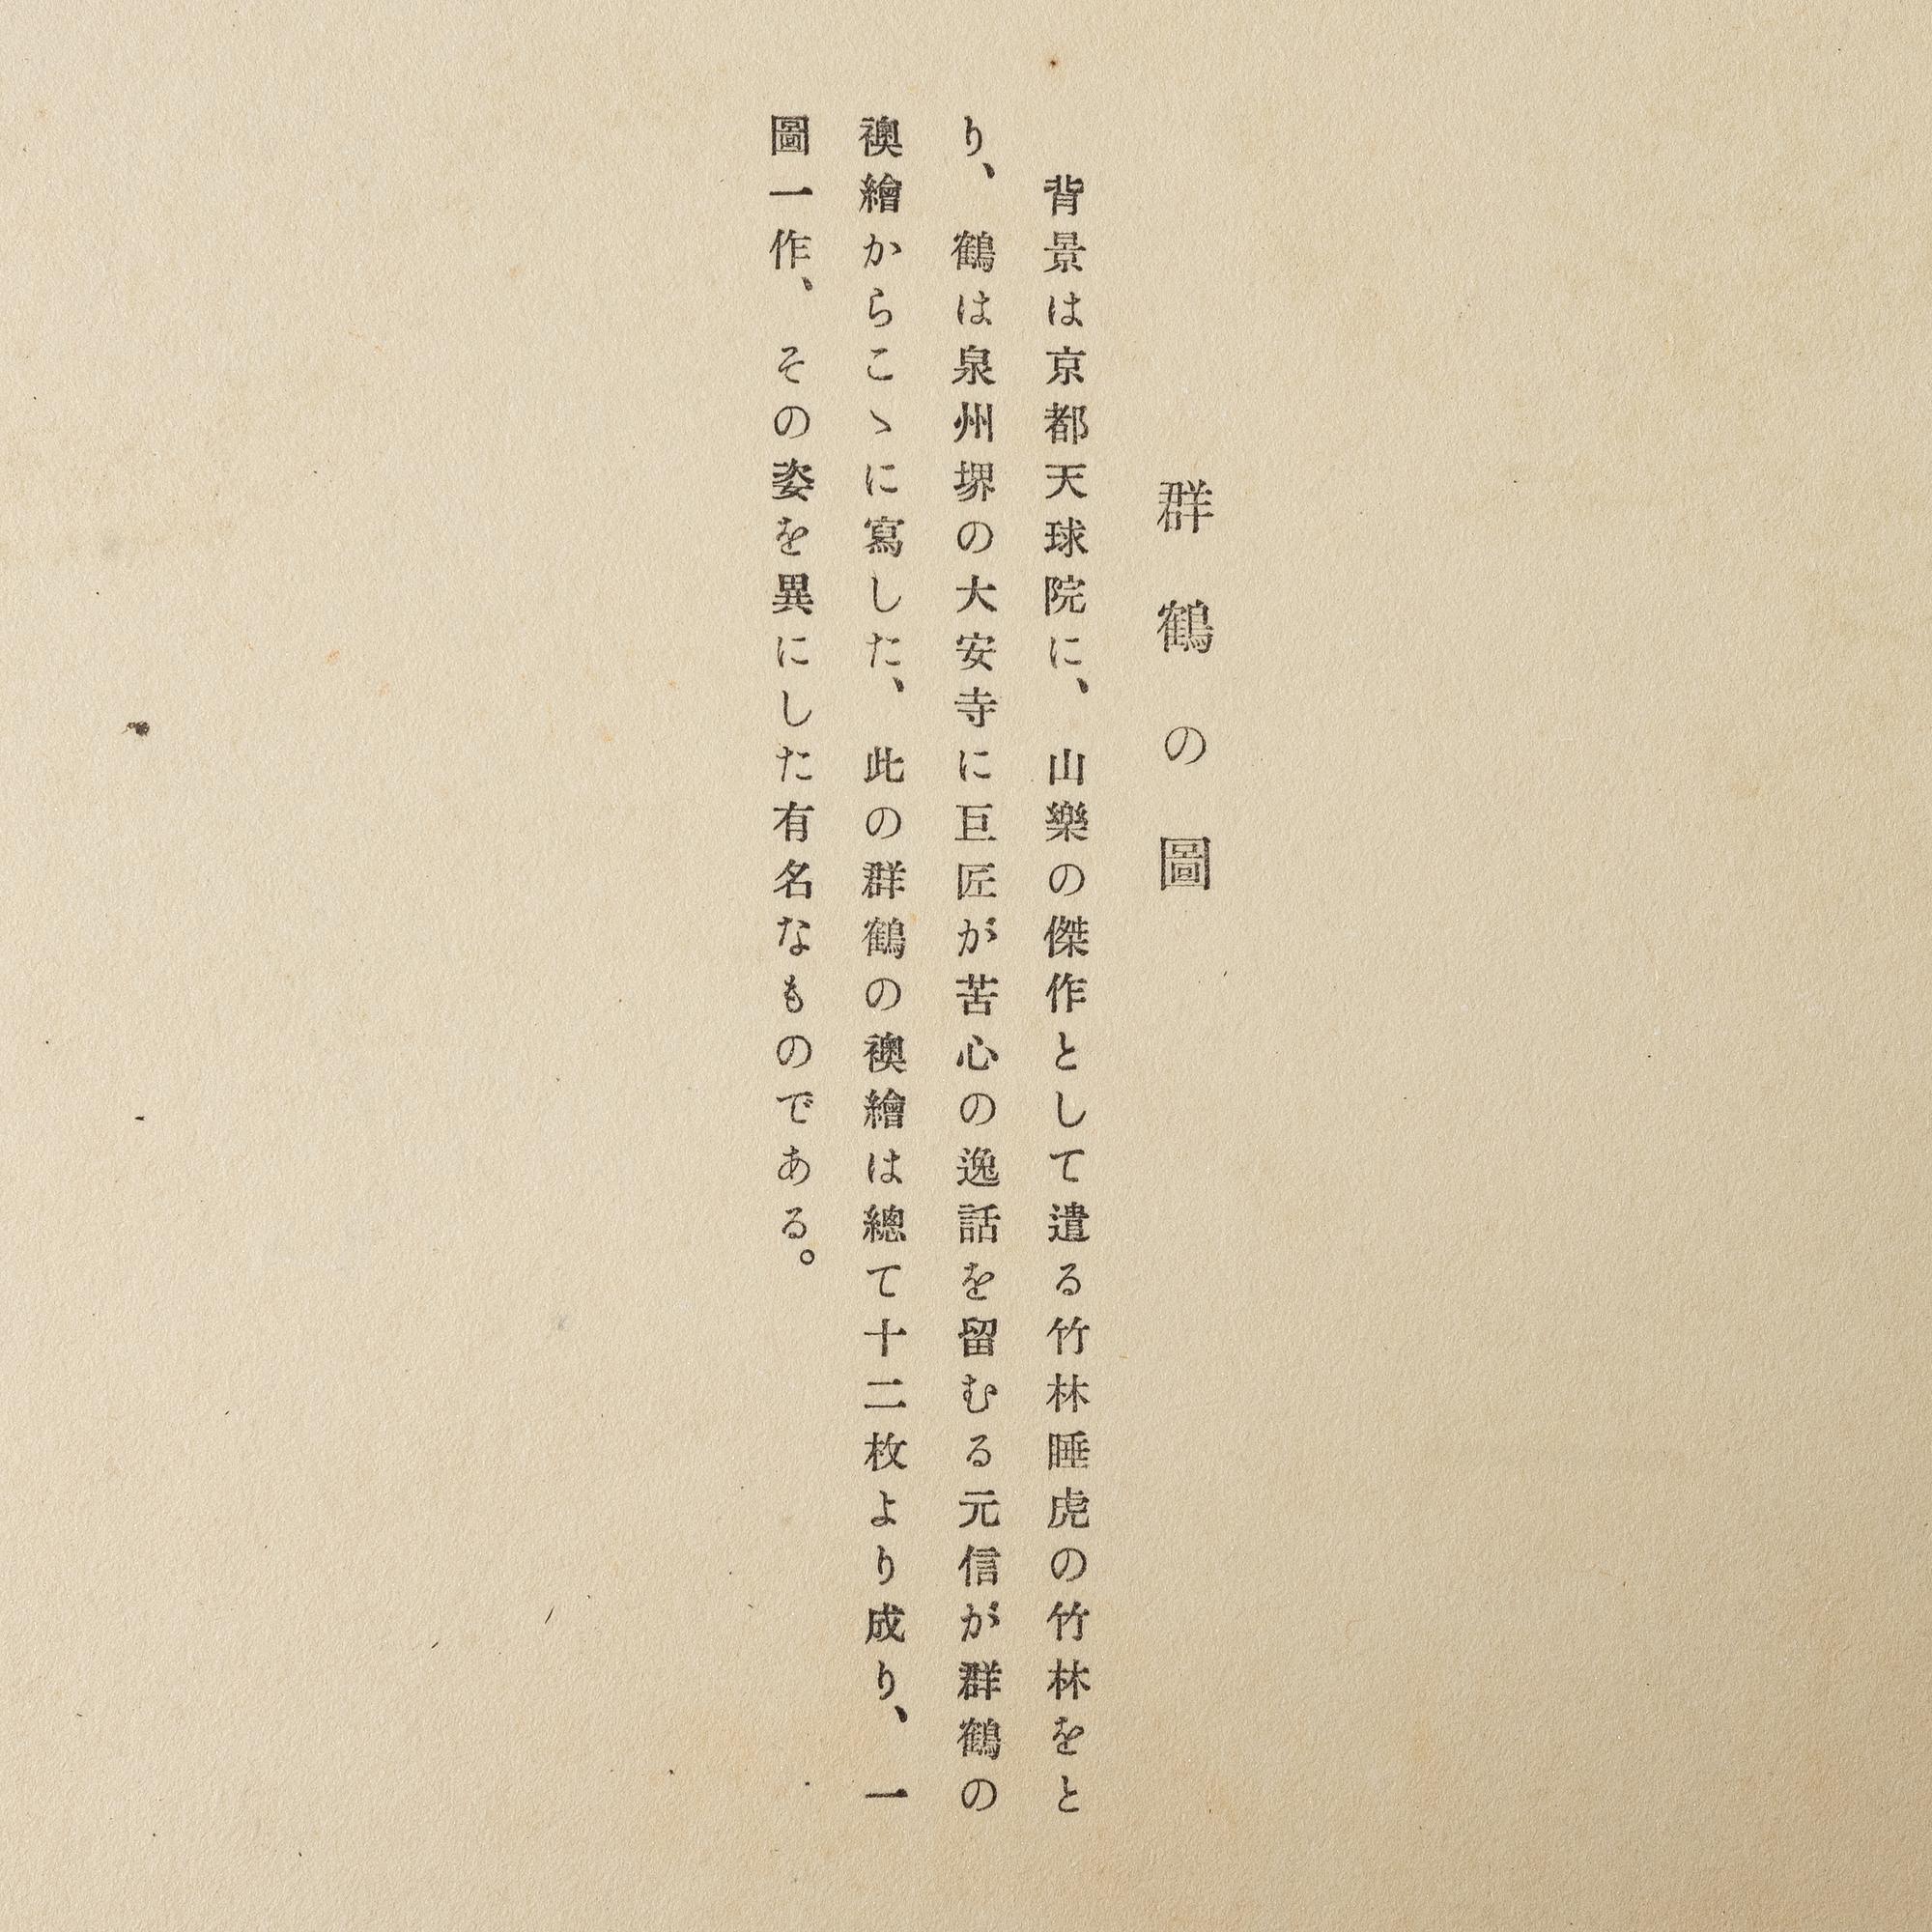 群鶴の圖
背景は京都天球院に、山樂の傑作として遺る竹林睡虎の竹林をと
り、鶴は泉州堺の大安寺に巨匠が苦心の逸話を留むる元信が群鶴の
襖繪からこゝに寫した、此の群鶴の襖繪は總て十二枚より成り、一
圖一作、その姿を異にした有名なものである。